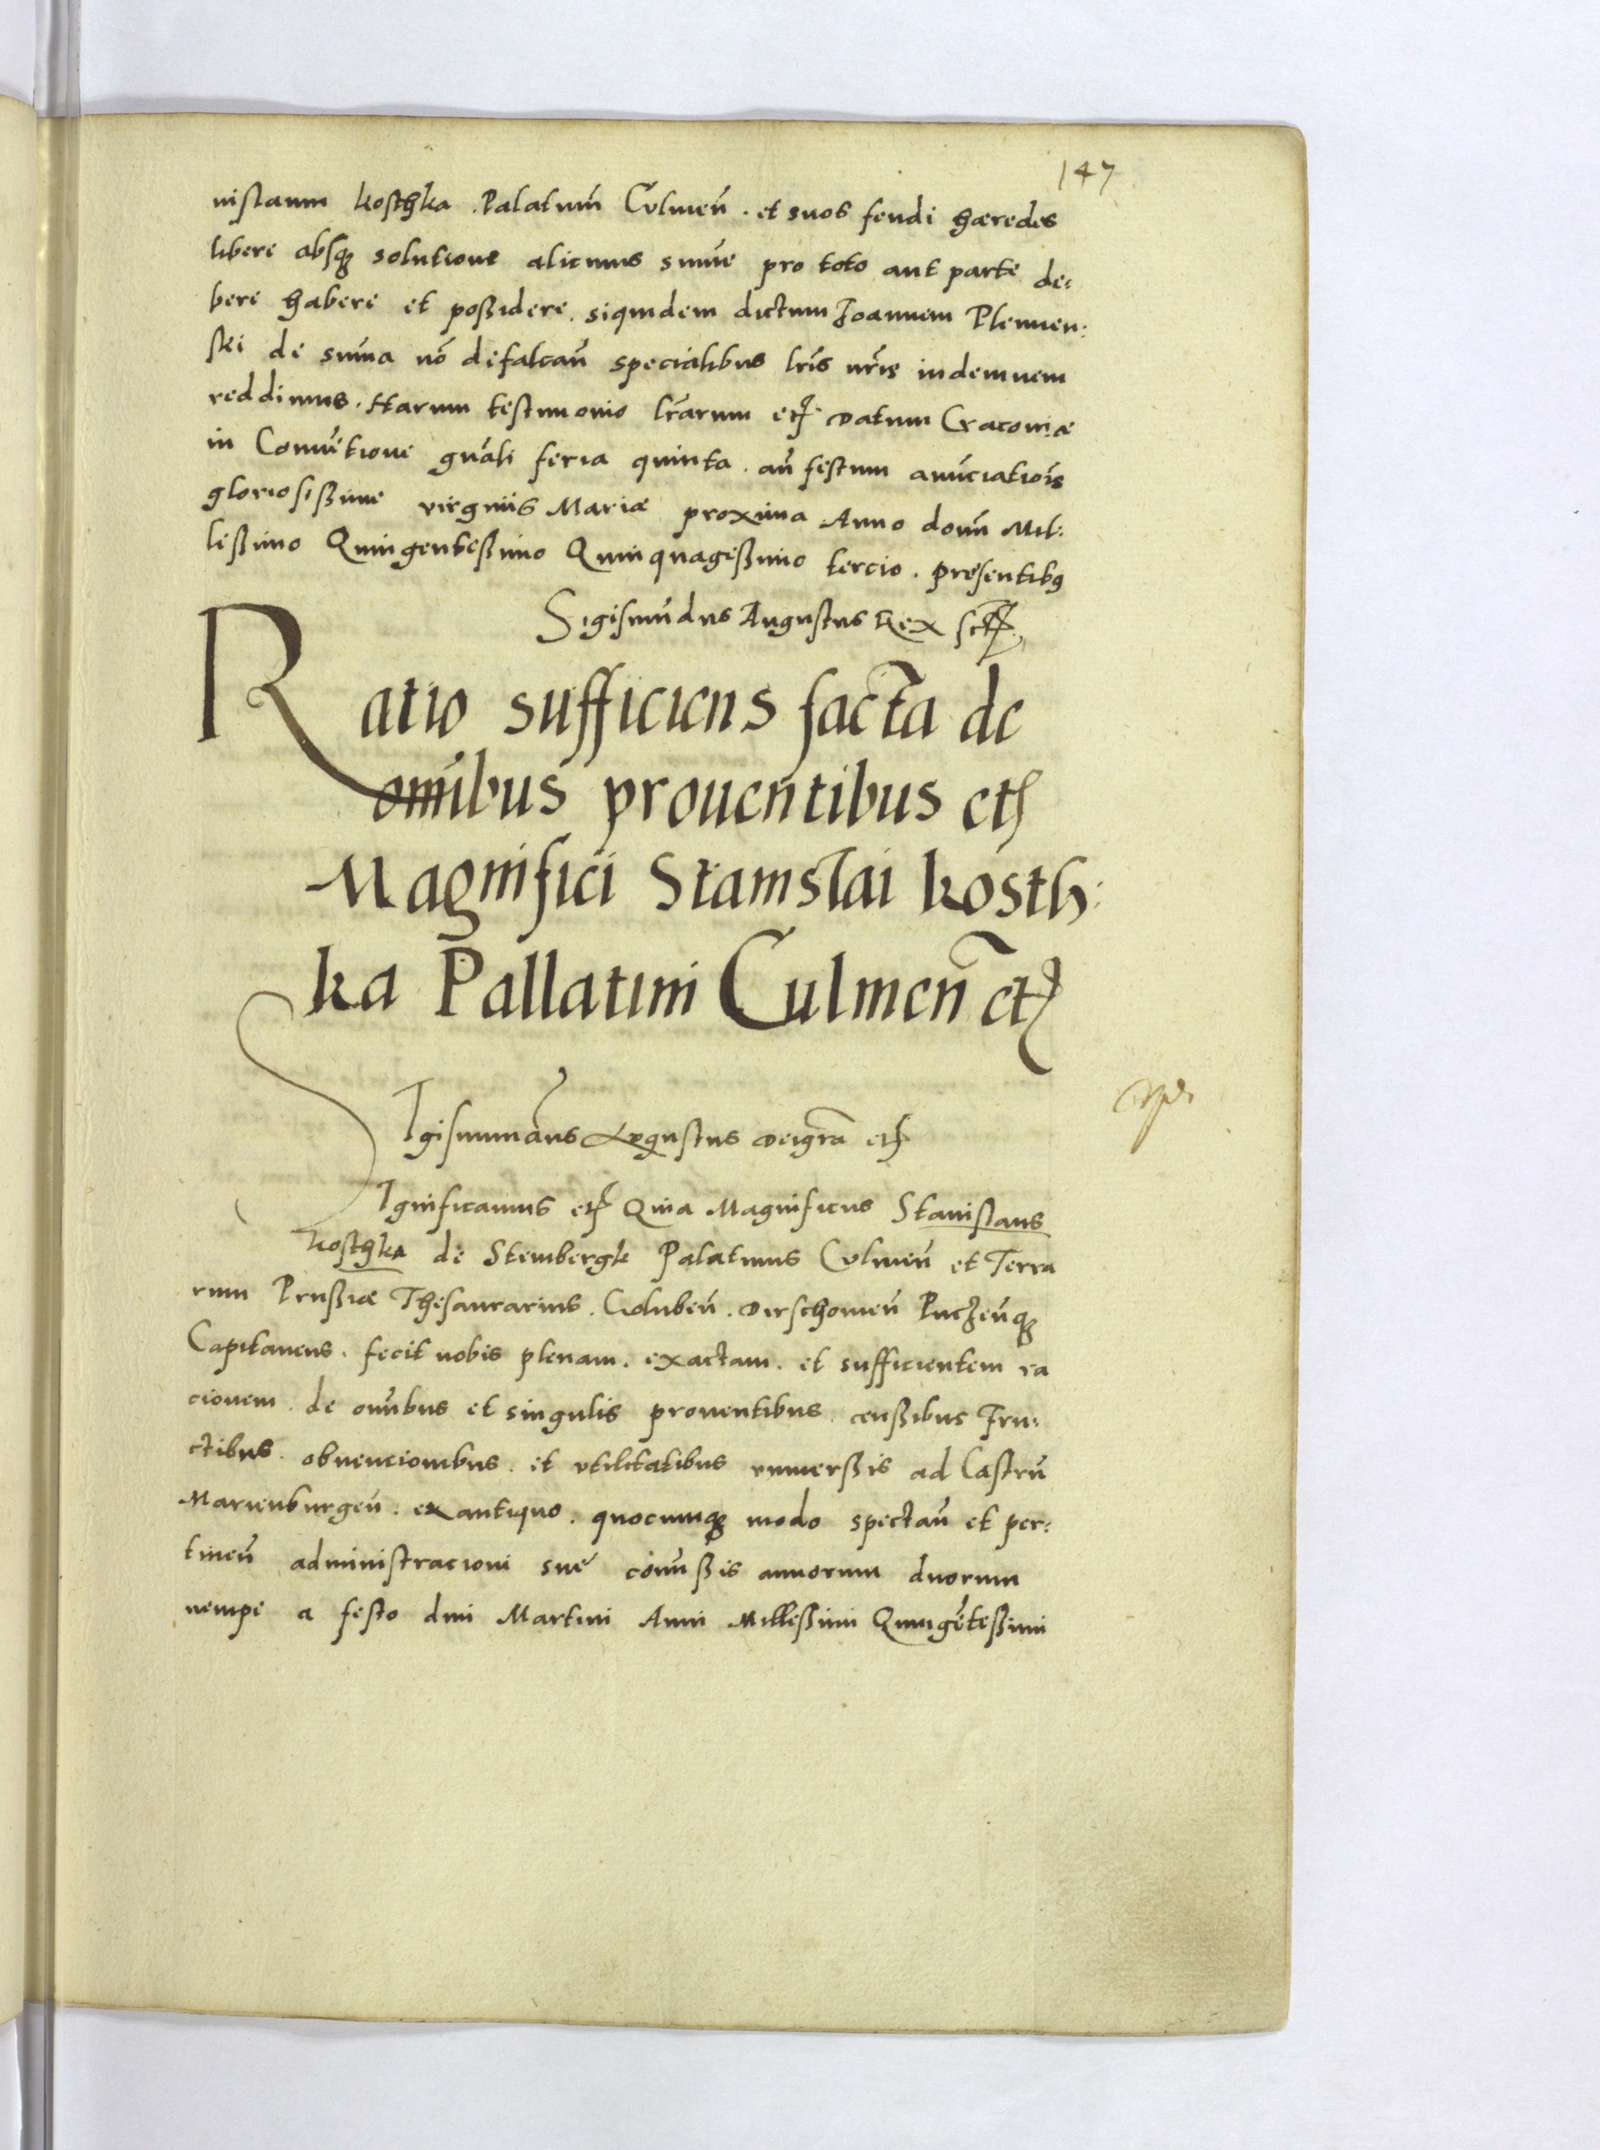 147
nislaum Kosthka Palatinū Culmeñ. et suos feudi hæredes
libere absq3 solutione alicuius sum̄e pro toto aut parte de:
bere habere et poßidere. siquidem dictum Joannem Plemien:
ski de sum̄a nō defalcan̄ specialibus lr̄is nr̄is indemnem
reddimus. Harum testimonio lr̄arum etc̄. Datum Cracoviæ
in Convētione gn̄ali feria quinta. an̄ festum anūciatiōis
gloriosißime virginis Mariæ proxima Anno domī Mil:
leßimo Quingenteßimo Quinquageßimo tercio. presentib9
Sigismūdus Augustus Rex sc̄t
Ratio sufficiens facta de
omībus prouentibus etc
Magnifici Stanislai Kosth:
ka Pallatini Culmeñ etc
Sigismundus Augustus Dei gr̄a etc
Significamus etc Quia Magnificus Stanislaus
Kosthka de Stembergk Palatinus Culmeñ et Terra
rum Prußiæ Thesaurarius. Goluben̄. Dirschouien̄ Puczen̄q3
Capitaneus. fecit nobis plenam. exactam. et sufficientem ra
cionem de om̄ibus et singulis prouentibus. cenßibus Fru:
ctibus. obuencionibus. et vtilitatibus vniuerßis ad Castrū
Marienburgen̄. ex antiquo. quocunq3 modo spectan̄ et per:
tinen̄ administracioni sue com̄ißis annorum duorum
nempe a festo diui Martini Anni Milleßimi Quingēteßimi